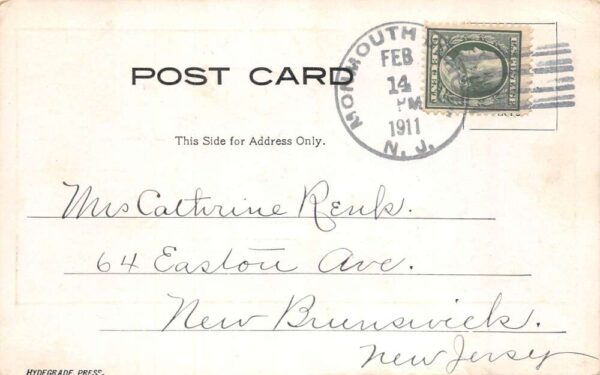 POST CARD
This Side for Address Only.
MONMOUTH
FEB
14
PM
1911
N. J.
Mrs Cathrine Renk.
64 Easton Ave.
New Brunswick.
New Jersey
HYDEGRADE PRESS.